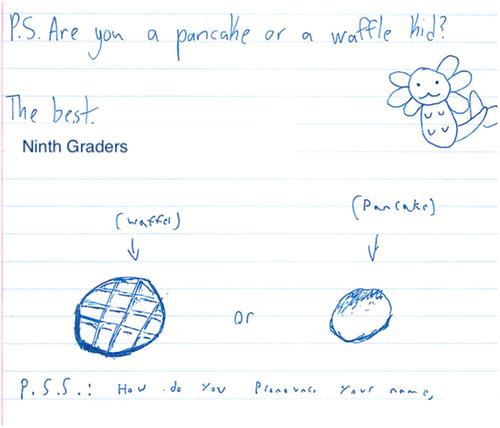 P.S. Are you a pancake or a waffle kid?
The best.
Ninth Graders
(waffel)
(Pancake)
or
P.S.S.: How do you Pronounce your name,